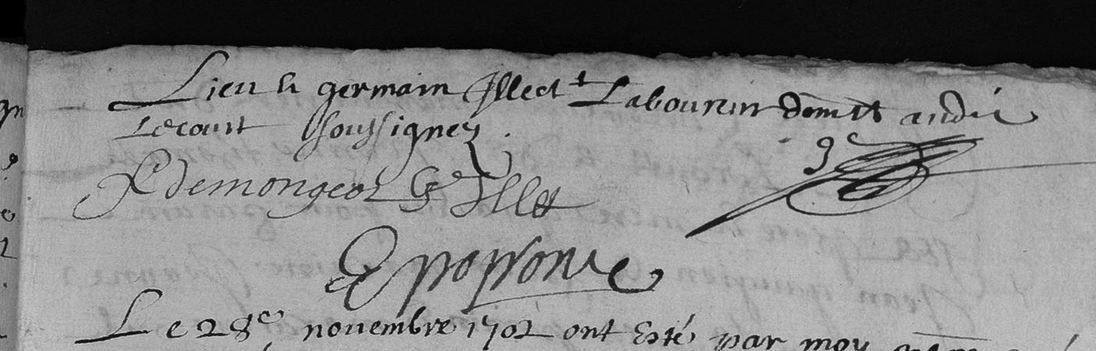 Lieu & germain Illet Laboureur domt andit
Lecourt soussignez.
P demongeot G Illet
E poissonnie
Le 28e novembre 1702 ont Esté par moy